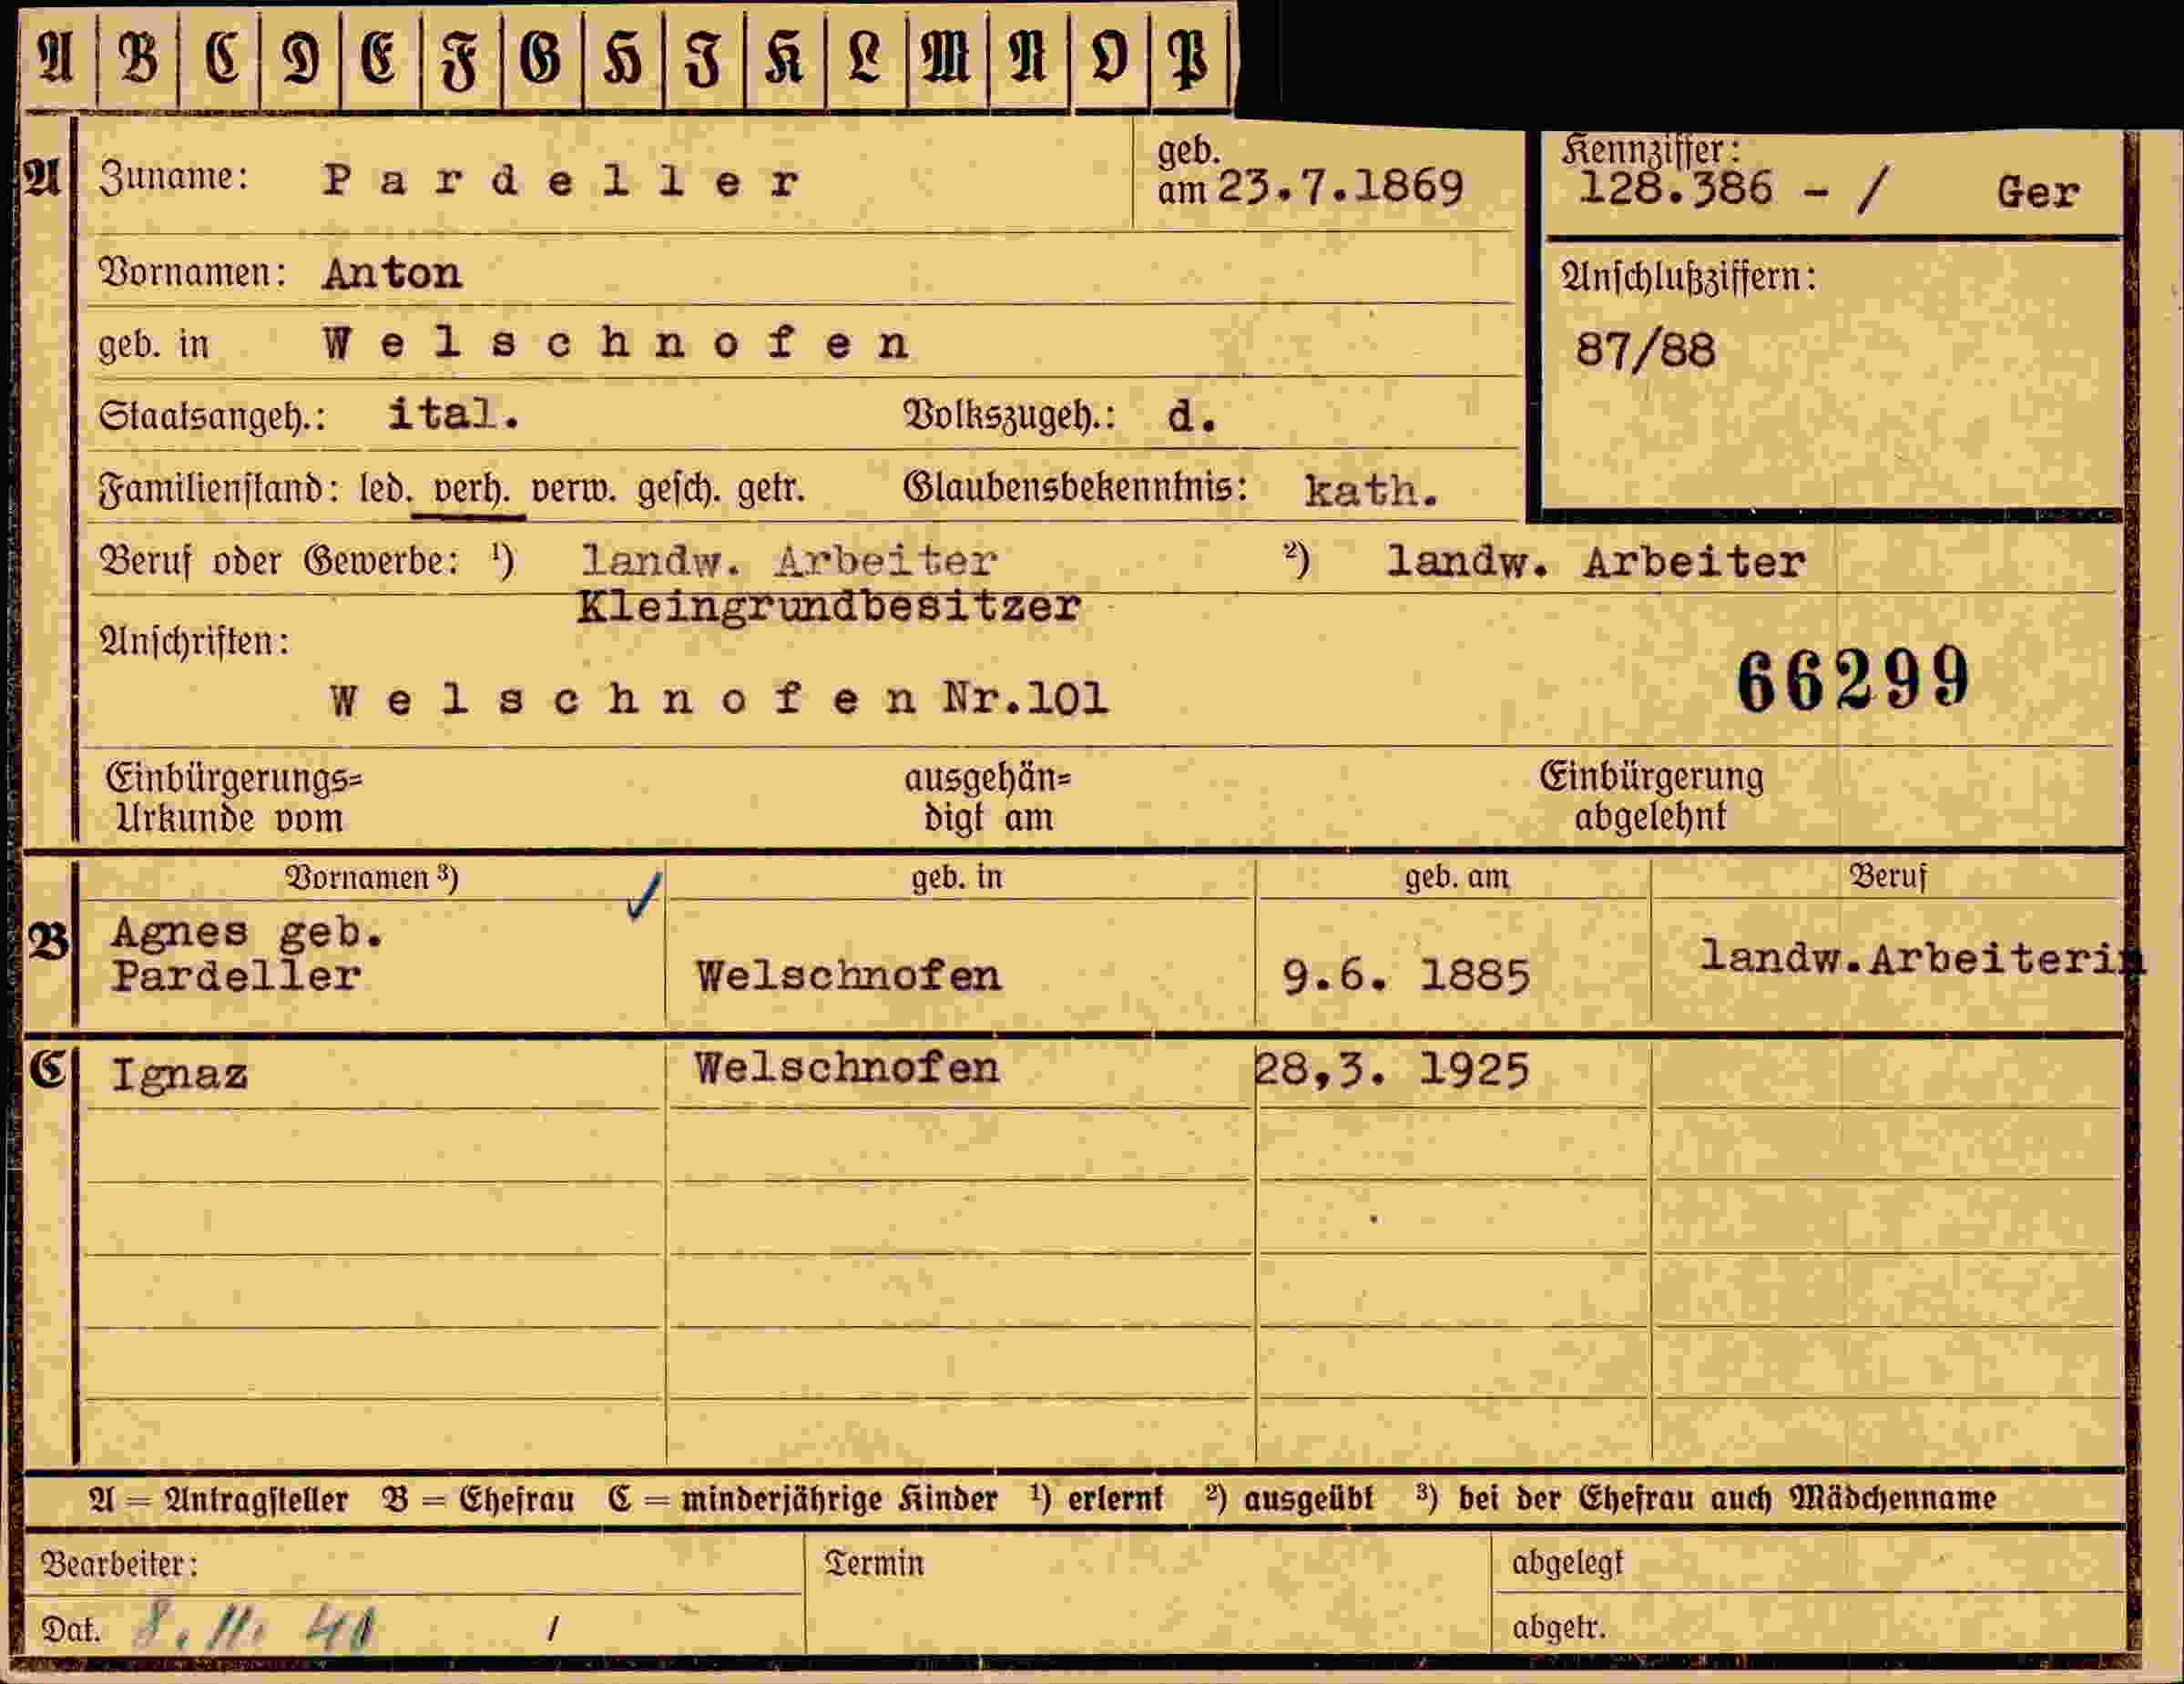 A B C D E F G H I K L M N O P
A Zuname: Pardeller geb. am 23.7.1869 Kennziffer: 128.386 - / Ger
Vornamen: Anton Anschlußziffern:
geb. in Welschnofen 87/88
Staatsangeh.: ital. Volkszugeh.: d.
Familienstand: led. verh. verw. gesch. getr. Glaubensbekenntnis: kath.
Beruf oder Gewerbe: ¹) landw. Arbeiter ²) landw. Arbeiter
Kleingrundbesitzer
Anschriften:
Welschnofen Nr.101 66299
Einbürgerungs= ausgehän= Einbürgerung
Urkunde vom digt am abgelehnt
Vornamen ³) geb. in geb. am Beruf
B Agnes geb.
Pardeller Welschnofen 9.6. 1885 landw.Arbeiterin
C Ignaz Welschnofen 28,3. 1925
A = Antragsteller B = Ehefrau C = minderjährige Kinder ¹) erlernt ²) ausgeübt ³) bei der Ehefrau auch Mädchenname
Bearbeiter: Termin abgelegt
Dat. 8. 11. / abgetr.